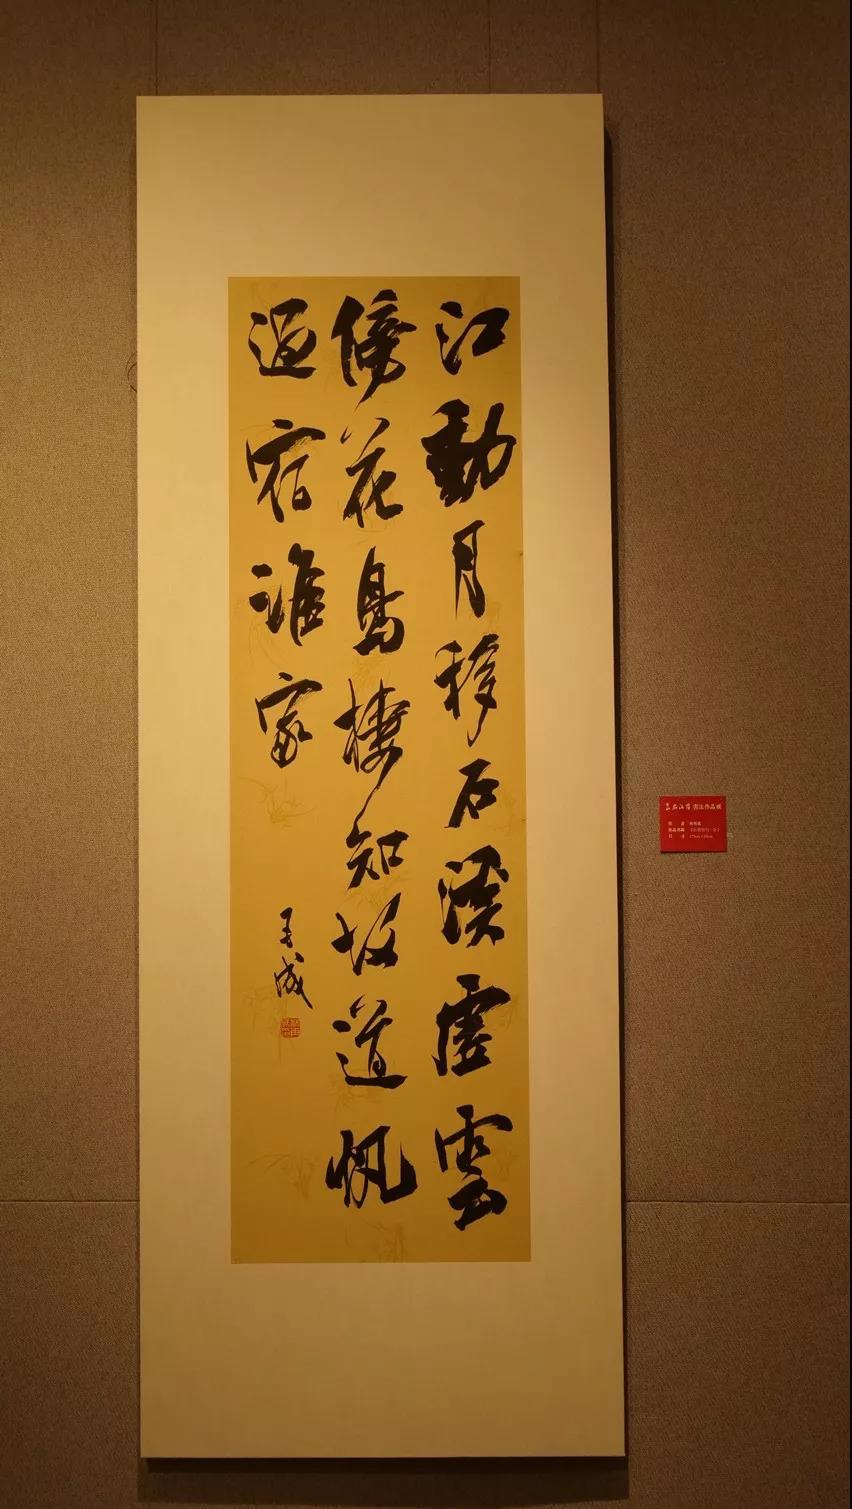 江動月移石溪虛雲
傍花鳥棲知故道帆
過宿誰家
書法作品展